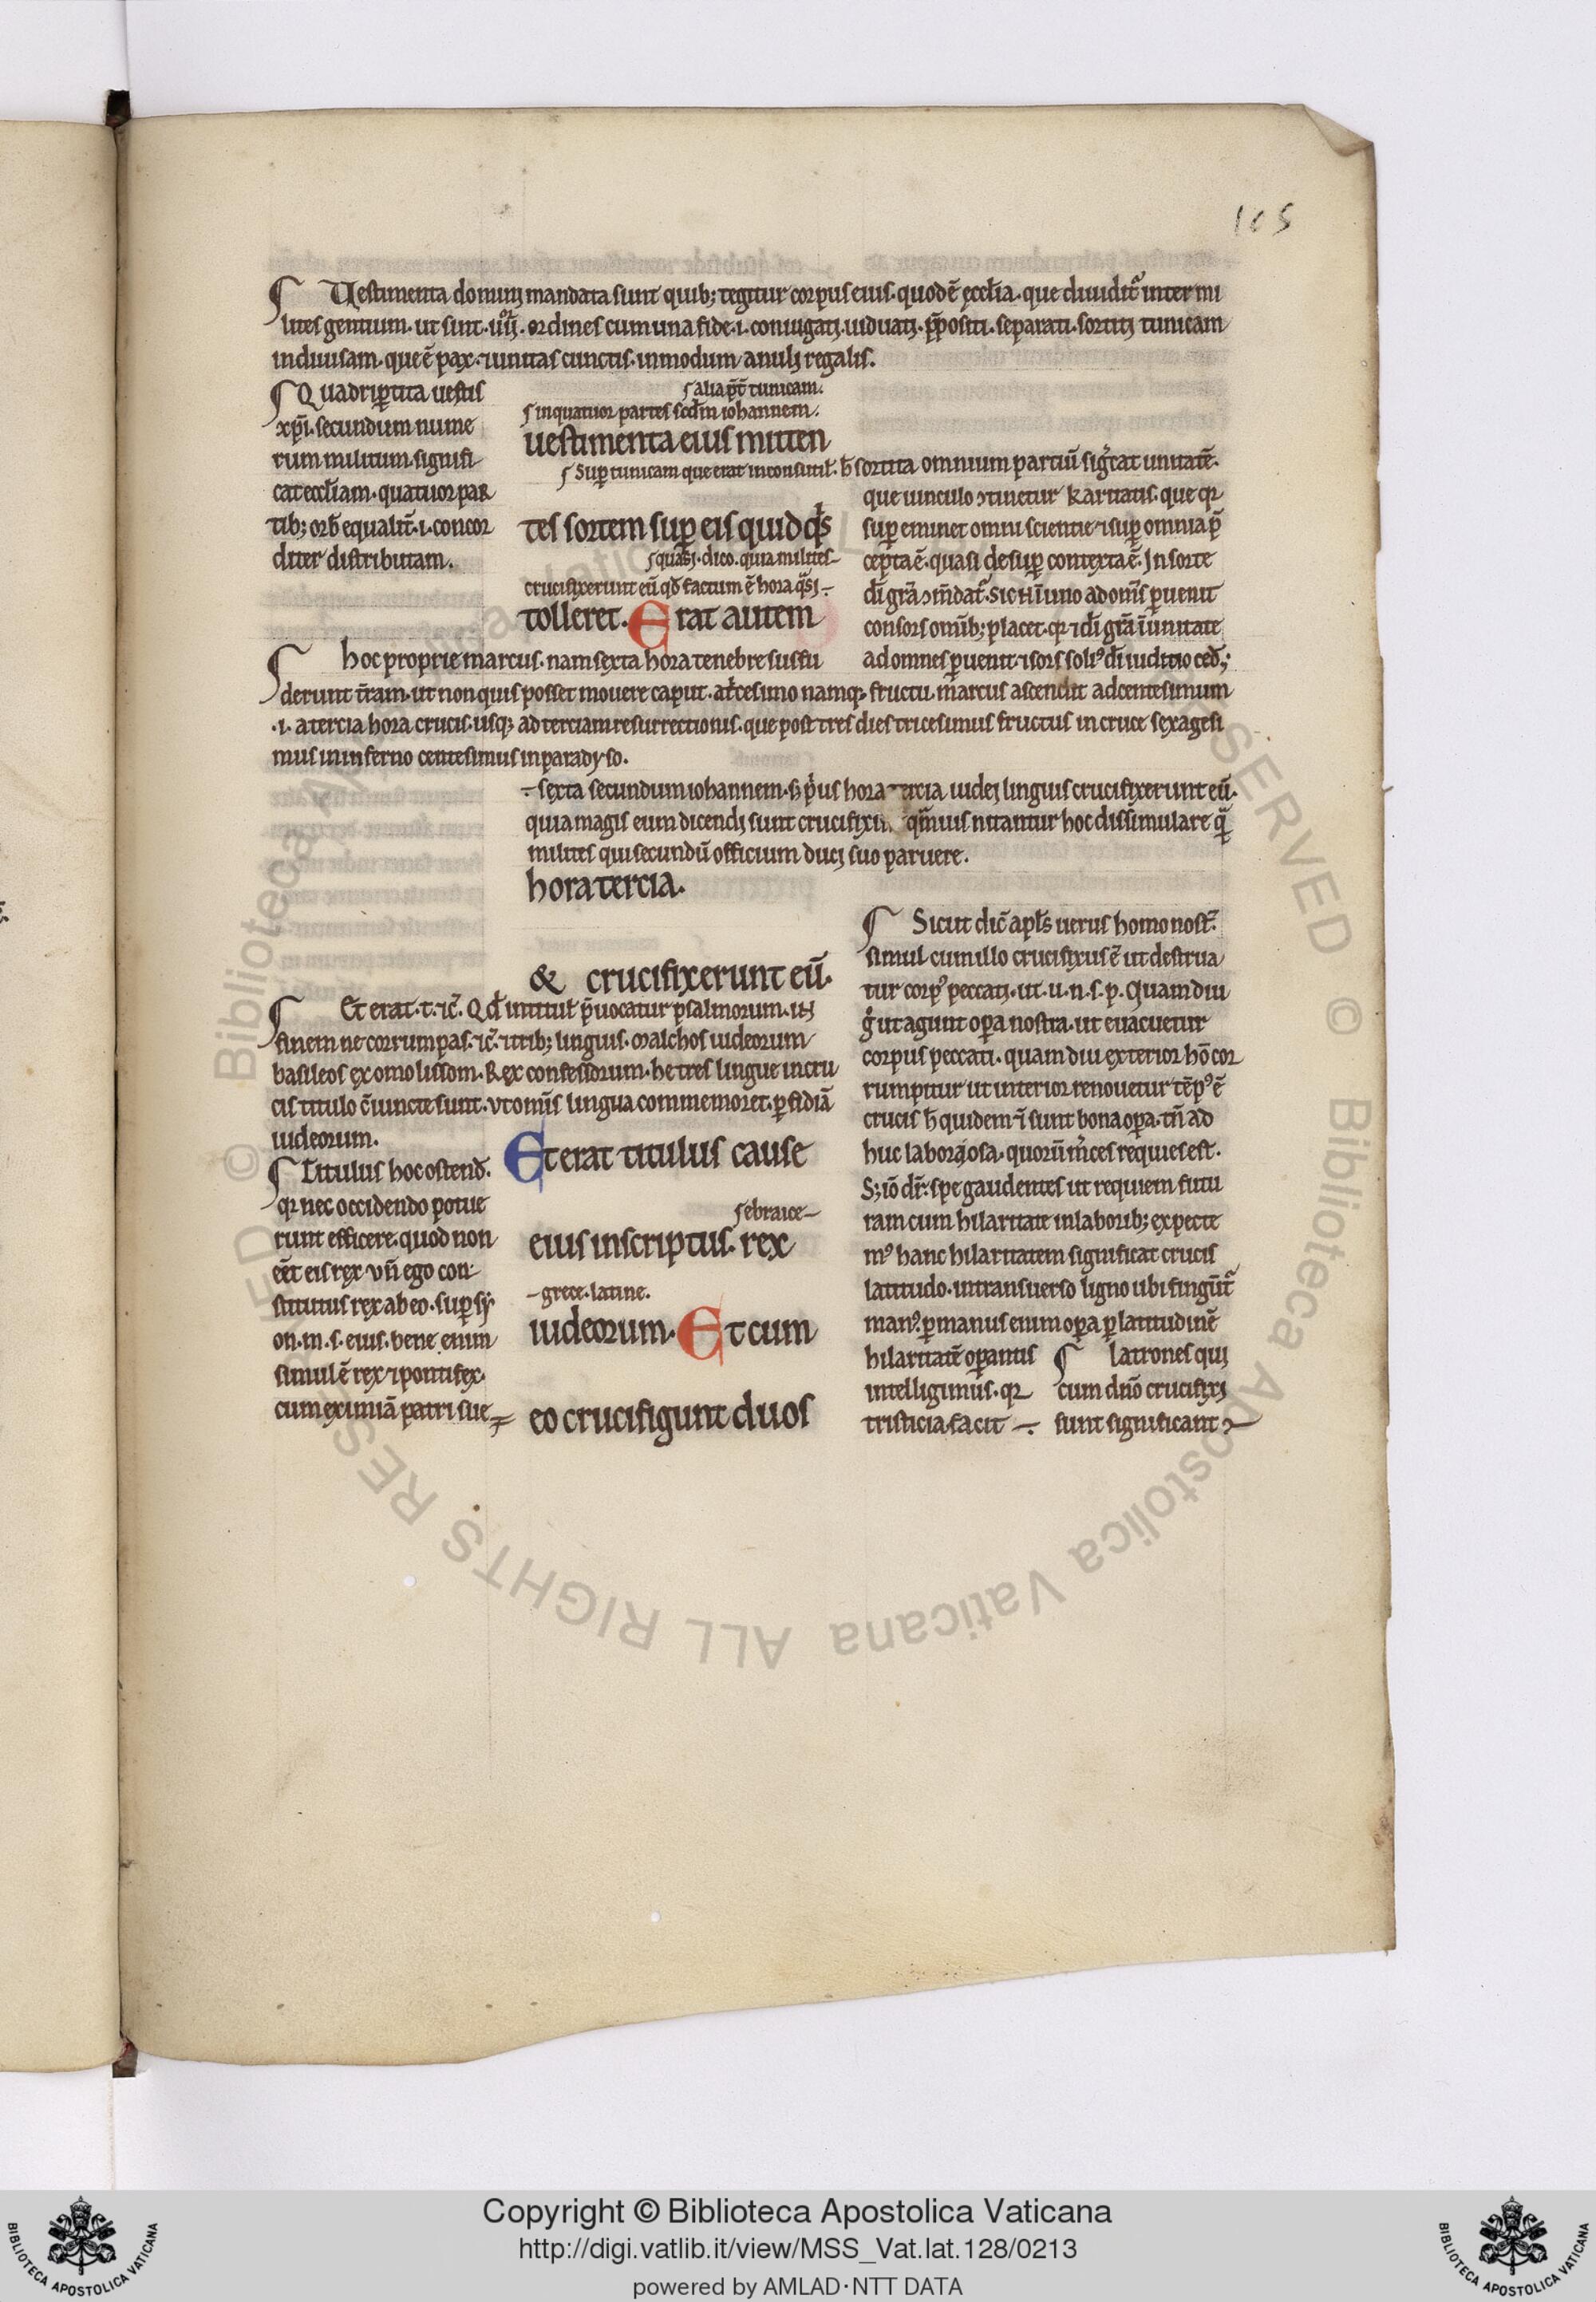 105
Vestimenta domini mandata sunt quib; tegitur corpus eius. quod ē ęccl̄ia. que diuidit᷑ inter mi
lites gentium. ut sint .iiii. ordines cum una fide .i. coniugati. uiduati. p̄positi. separati. sortiti tunicam
indiuisam. que ē pax. ⁊ unitas cunctis. in modum anuli regalis.
Quadrip̱tita uestis
xp̄i. secundum nume
rum militum. signifi
cat eccl̄iam. quatuor par
tib; orb̄ equalit̄ .i. concor
diter distributam.
alia p̄t̄ tunicam.
in quatuor partes scd̄m iohannem.
uestimenta eius mitten
Sup̱ tunicam que erat inconsutil̄.
tes sortem sup̱ eis quid q̄s
quasi. dico. quia milites
crucifixerunt eū qd̄ factum ē hora q̄si
tolleret. Erat autem
h̄ sortita omnium partiū siḡcat unitatē.
que uinculo ↄtinetur karitatis. que qr
sup̱ eminet omni scientie ⁊ sup̱ omnia p̄
cepta ē. quasi desup̱ contexta ē. In sorte
dī gr̄a ↄm̄dat᷑. sic n̄ ī uno ad om̄s p̱uenit
consors om̄ib; placet. qr ⁊ dī gr̄a ī unitate
ad omnes p̱uenit. ⁊ sors soli᷒ dī iuditio ced̄;
hoc proprie marcus. nam sexta hora tenebre suffu
derunt t̄ram. ut non quis posset mouere caput. at͛cesimo namq; fructu. marcus ascendit ad centesimum
.i. a tercia hora crucis. usq; ad terciam resurrectionis. que post tres dies tricesimus fructus in cruce sexagesi
mus in inferno centesimus in paradyso.
sexta secundum iohannem. s; p͛us hora tercia iudei linguis crucifixerunt eū.
quia magis eum dicendi sunt crucifixi q̄muis nitantur hoc dissimulare q̄
milites qui secundū officium duci suo paruere.
hora tercia.
& crucifixerunt eū.
Et erat. t. ⁊c̄. Qd̄ in titul̄ p̄uocatur psalmorum. in
finem ne corrumpas. ⁊c̄. ⁊ trib; linguis. malchos iudeorum
basileos exomolisson. Rex confessorum. he tres lingue in cru
cis titulo ↄiuncte sunt. vt om̄is lingua commemoret. p̱fidiā
iudeorum.
Titulus hoc ostend̄.
qr nec occidendo potue
runt efficere. quod non
eēt eis rex. vn̄ ego con
stitutus rex ab eo. sup̱ sy
on. m. s. eius. bene enim
simul ē rex ⁊ pontifex.
cum eximiā patri sue
Et erat titulus cause
ebraice
eius inscriptus. rex
grece. latine.
iudeorum. Et cum
eo crucifigunt duos
Sicut dic̄ apl̄s uerus homo nost᷑
simul cum illo crucifixus ē ut destrua
tur corp᷒ peccati. ut. u. n. s. p. Quamdiu
g͛ ut agunt op̱a nostra. ut euacuetur
corpus peccati. quam diu exterior hō cor
rumpitur ut interior renouetur tēp᷒ ē
crucis h̄ quidem ⁊ī sunt bona op̱a. tn̄ ad
huc laboriosa. quorū m͛ces requies est.
S; iō dr̄: spe gaudentes ut requiem futu
ram cum hilaritate in laborib; expecte
m᷒ hanc hilaritatem significat crucis
latitudo. in transuerso ligno ubi fingūt᷑
man᷒. p̱ manus enim op̱a p̱ latitudinē
hilaritatē op̱antis
intelligimus. qr
tristicia facit
latrones qui
cum dn̄o crucifixi
sunt significant
Copyright © Biblioteca Apostolica Vaticana
http://digi.vatlib.it/view/MSS_Vat.lat.128/0213
powered by AMLAD·NTT DATA
BIBLIOTECA APOSTOLICA VATICANA
BIBLIOTECA APOSTOLICA VATICANA
© Biblioteca Apostolica Vaticana ALL RIGHTS RESERVED